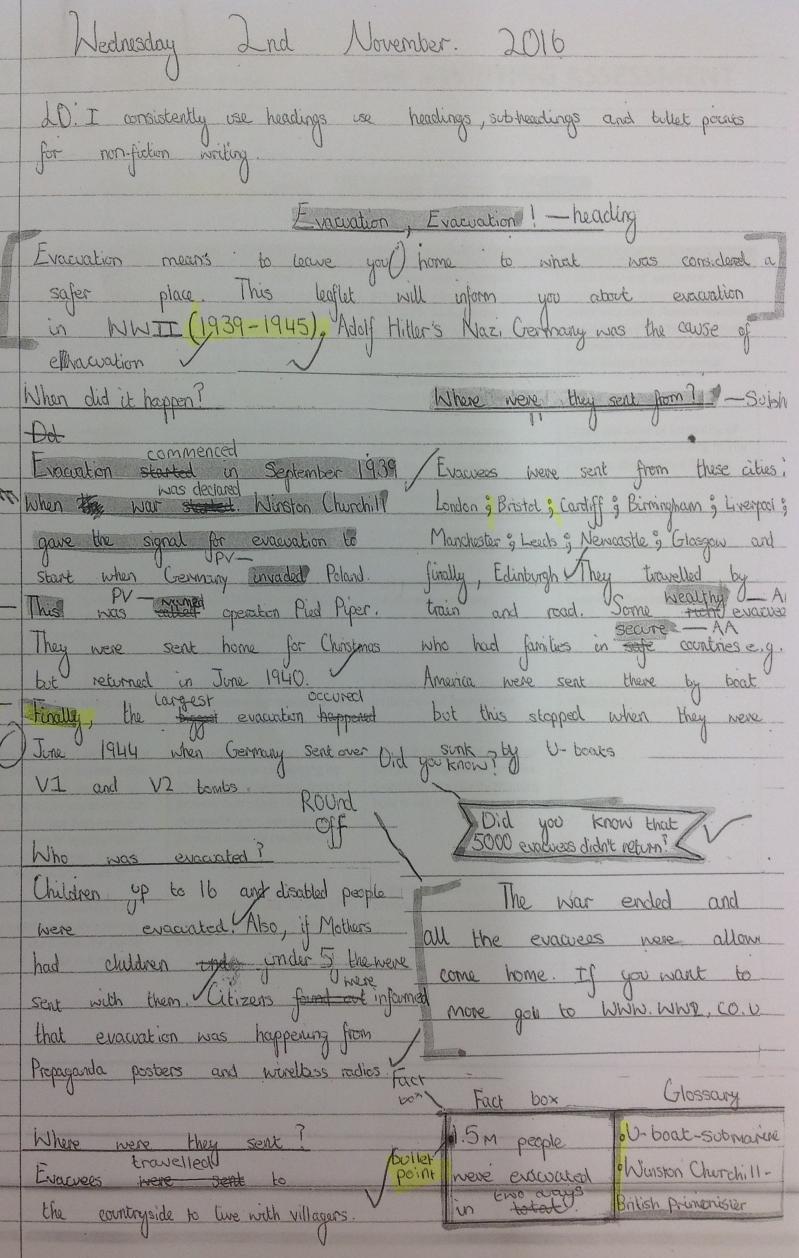 Wednesday 2nd November. 2016
LO: I consistently use headings use headings, subheadings and bullet points
for non-fiction writing.
Evacuation, Evacuation! — heading
Evacuation means to leave you() home to what was considered a
safer place. This leaflet will inform you about evacuation
in WWII (1939-1945), Adolf Hitler's Nazi Germany was the cause of
evacuation
When did it happen?
Dd
commenced
Evacuation started in September 1939
was declared
when war started. Winston Churchill
gave the signal for evacuation to
PV —
start when Germany invaded Poland.
PV —
This was named operation Pied Piper.
They were sent home for Christmas
but returned in June 1940.
largest occured
Finally, the biggest evacuation happened
June 1944 when Germany sent over
V1 and V2 bombs.
Where were they sent from? — Subh
Evacuees were sent from these cities:
London; Bristol; Cardiff; Birmingham; Liverpool;
Manchester; Leeds; Newcastle; Glasgow and
finally, Edinburgh. They travelled by
wealthy — A
train and road. Some evacuee
secure — AA
who had families in safe countries e.g.
America were sent there by boat
but this stopped when they were
sunk by U-boats
Did you know?
Did you know that
5000 evacuees didn't return?
Who was evacuated?
Children up to 16 and disabled people
were evacuated. Also, if Mothers
had children under 5 the were
were
sent with them. Citizens found out informed
that evacuation was happening from
Propaganda posters and wireless radios.
ROUND
OFF
The war ended and
all the evacuees were allow
come home. If you want to
more gou to WWW.WW2.CO.U
Where were they sent?
travelled
Evacuees were sent to
the countryside to live with villagers.
Fact
box
bullet
point
Fact box
1.5M people
were evacuated
two days
in total.
Glossary
U-boat-submarine
Winston Churchill-
British primenister